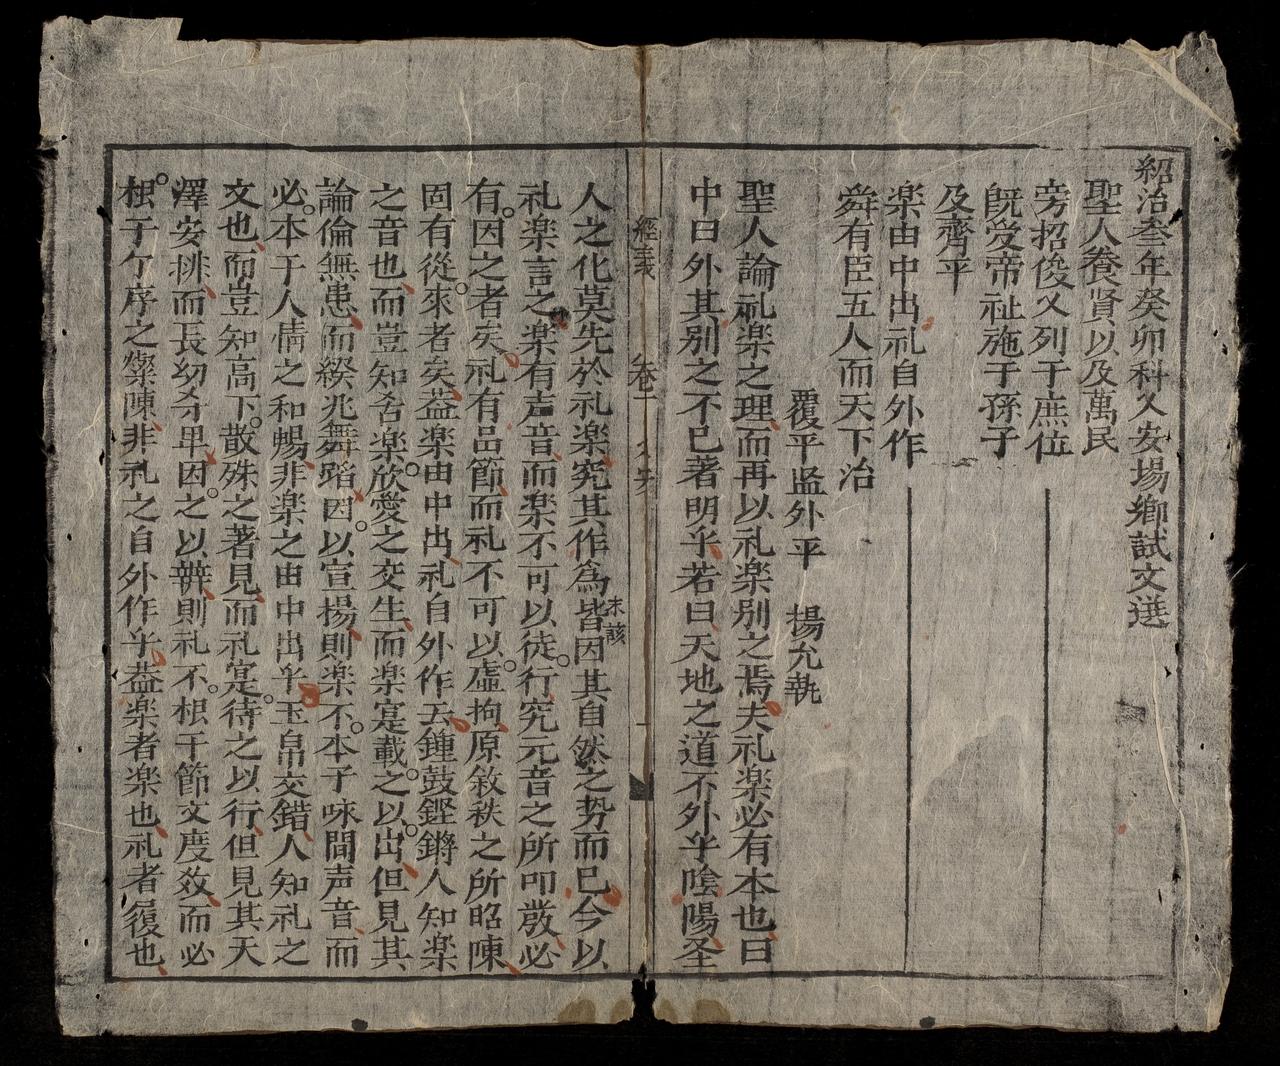 紹治叁年癸卯科乂安場鄉試文選
聖人養賢以及萬民
旁招俊乂列于庶位
既受帝祉施于孫子
及齊平
楽由中出礼自外作
舜有臣五人而天下治
覆平监外平　楊允執
聖人論礼楽之理而再以礼楽別之焉夫礼楽必有本也曰
中曰外其別之不已著明乎若曰天地之道不外乎陰陽圣
經義　卷一　乂安　一
人之化莫先於礼楽究其作為皆因其自然之势而已今以
末該
礼楽言之楽有声音而楽不可以徒行究元音之所叩發必
有因之者矣礼有品節而礼不可以虛拘原敘秩之所昭陳
固有從來者矣蓋楽由中出礼自外作云鍾鼓鏗鏘人知楽
之音也而豈知舍楽欣愛之交生而楽寔載之以出但見其
論倫無患而綴兆舞蹈因以宣揚則楽不本于咏間声音而
必本于人情之和暢非楽之由中出乎玉帛交錯人知礼之
文也而豈知高下散殊之著見而礼寔待之以行但見其天
澤安排而長幼芬卑因之以辨則礼不根于節文度效而必
根于亇序之燦陳非礼之自外作乎蓋楽者楽也礼者履也